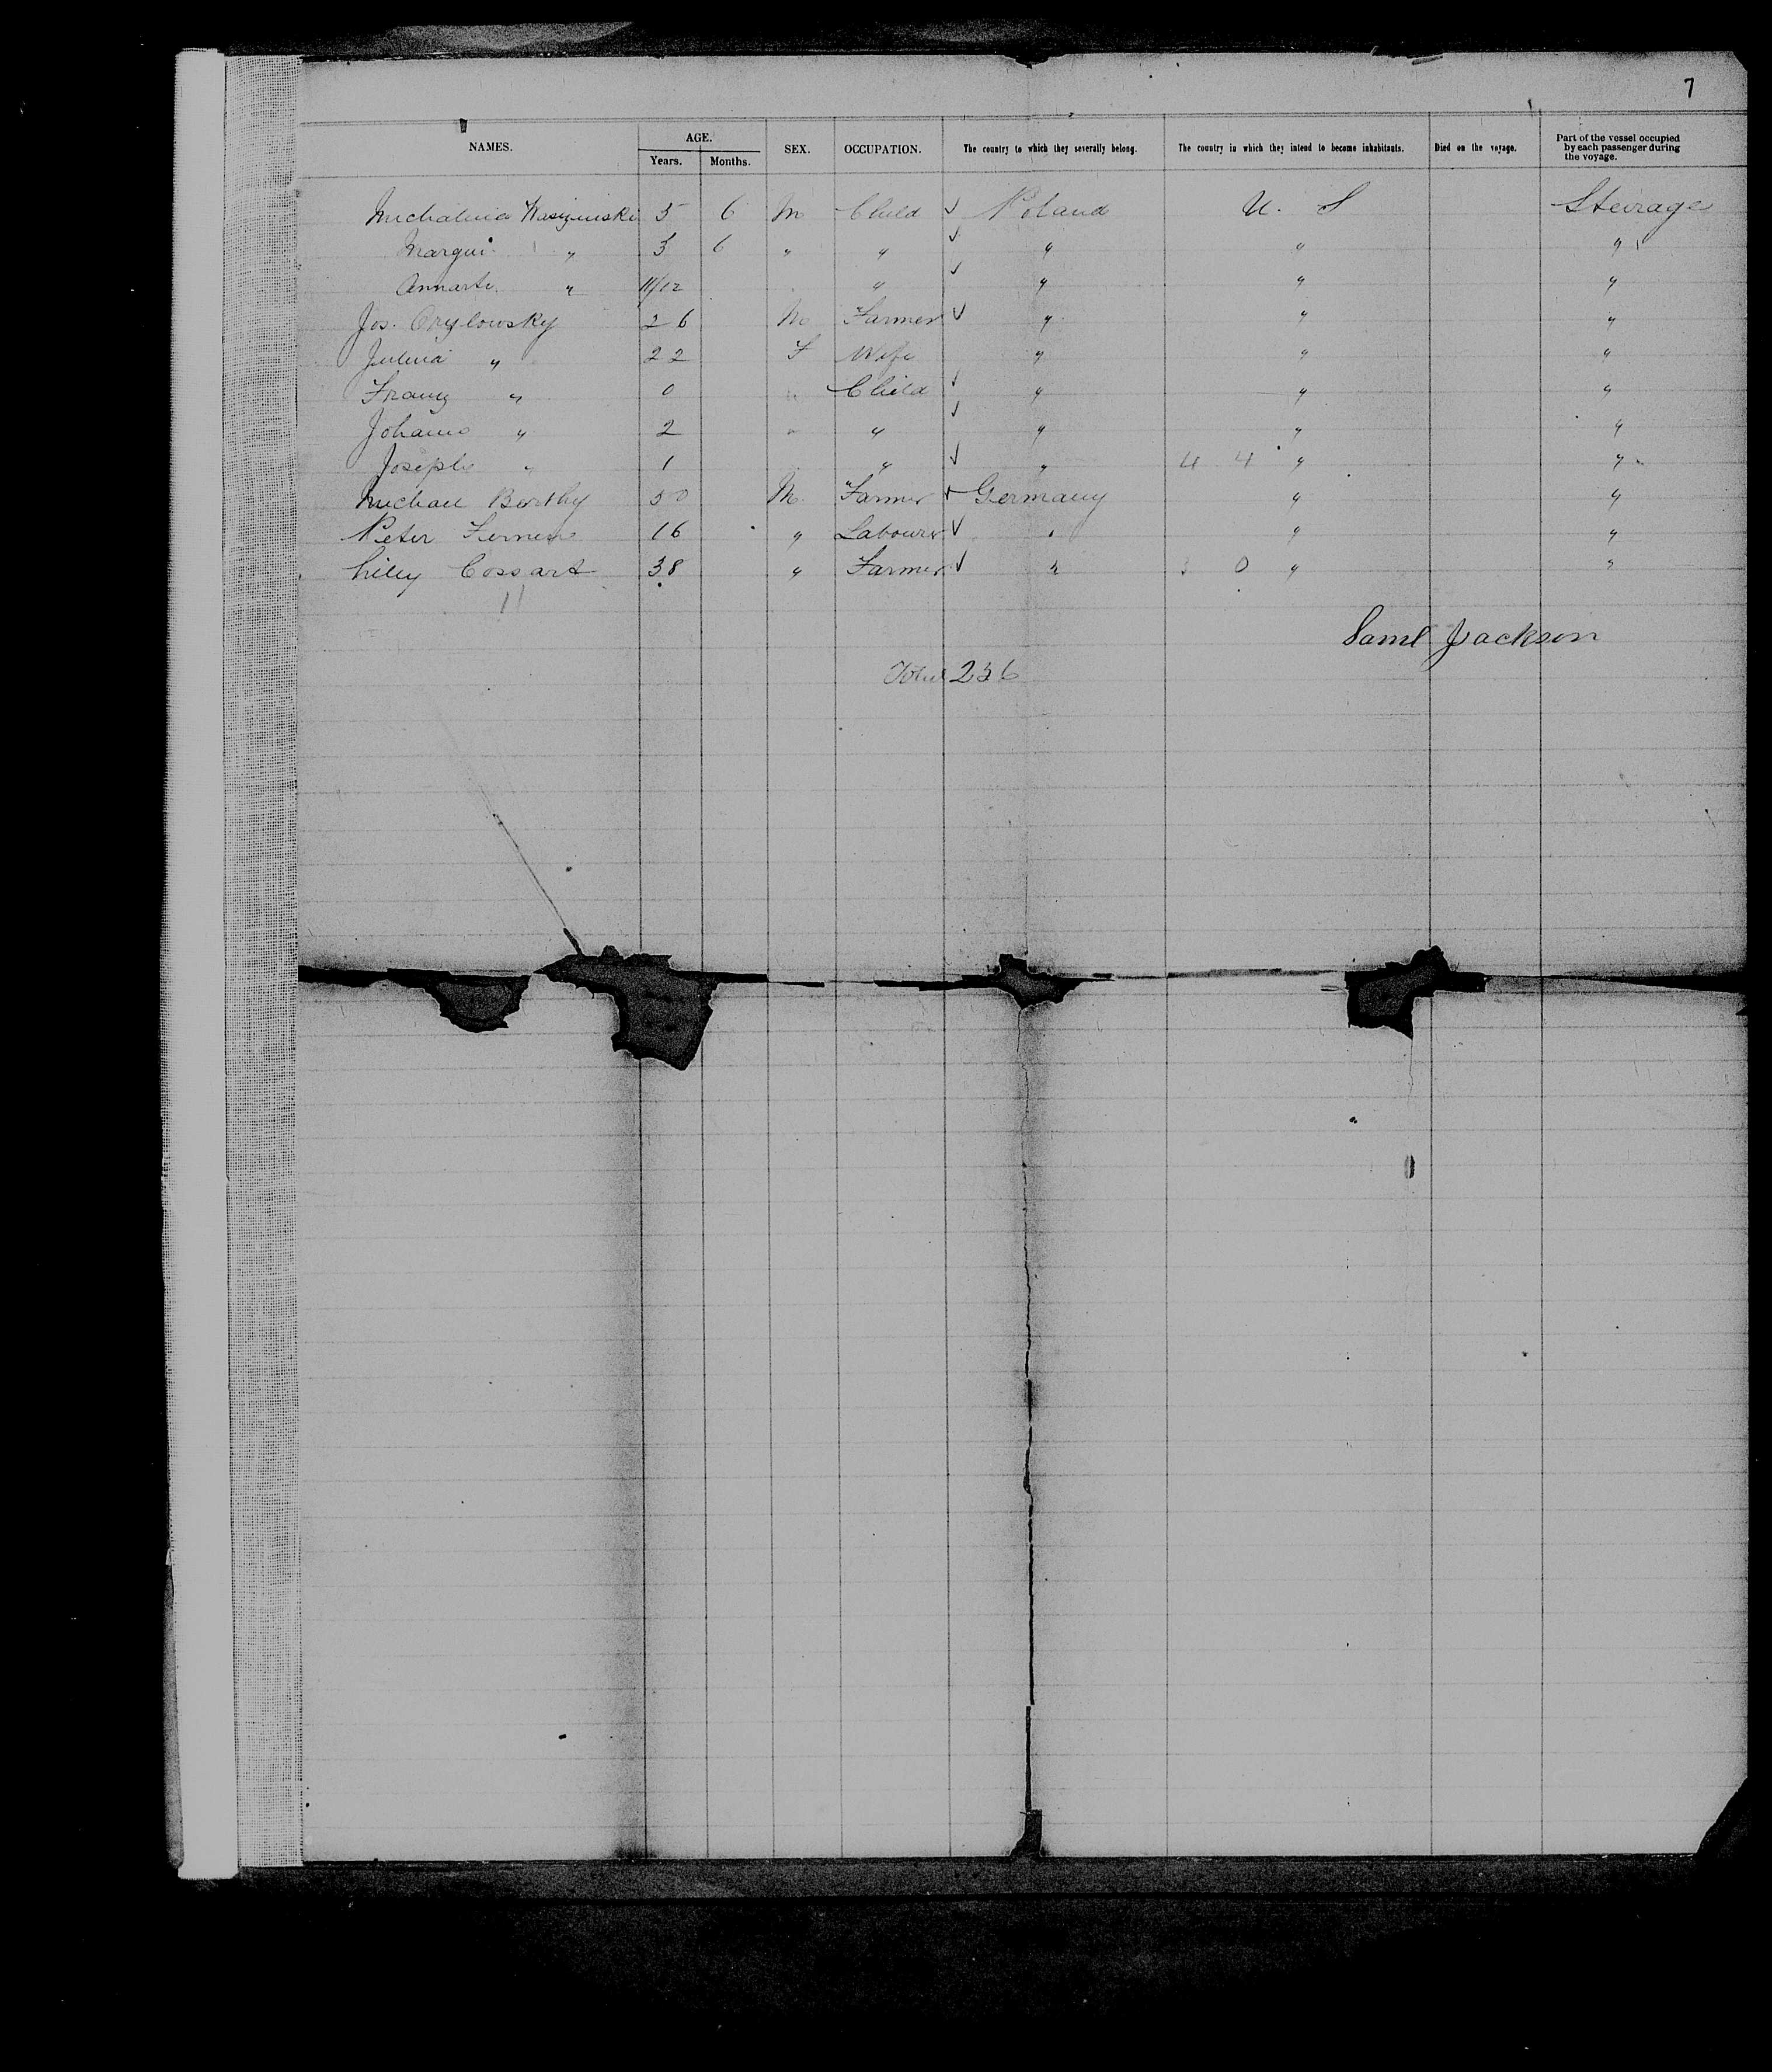 7
NAMES. AGE. Years. Months. SEX. OCCUPATION. The country to which they severally belong. The country in which they intend to become inhabitants. Died on the voyage. Part of the vessel occupied by each passenger during the voyage.
5 6 M Child ✓ Poland U. S Steirage
3 6 " " ✓ " " "
11/12 " ✓ " " "
Jos. 26 M Farmer ✓ " " "
" 22 F Wife " " "
Franz " 0 " Child ✓ " " "
" 2 " " ✓ " " "
Joseph " 1 " ✓ " 4 4 " "
Michael Berthy 50 M. Farmer ✓ Germany " "
Peter 16 " Labourer ✓ " " "
Cossart 38 " Farmer ✓ " 0 " "
11
Saml Jackson
Total 236